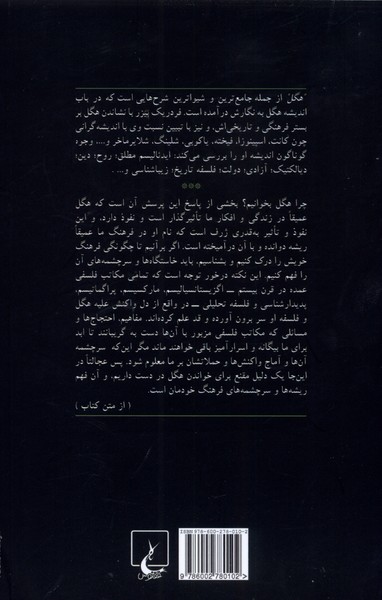 "هگل" از جمله جامع‌ترین و شیواترین شرح‌هایی است که در باب
اندیشه هگل به نگارش درآمده است. فردریک بیزر با نشاندن هگل بر
بستر فرهنگی و تاریخی‌اش، و نیز با تبیین نسبت وی با اندیشه‌گرانی
چون کانت، اسپینوزا، فیخته، یاکوبی، شلینگ، شلایرماخر و...، وجوه
گوناگون اندیشه او را بررسی می‌کند: ایدئالیسم مطلق؛ روح؛ دین؛
دیالکتیک؛ آزادی؛ دولت؛ فلسفه تاریخ؛ زیباشناسی و... .
***
چرا هگل بخوانیم؟ بخشی از پاسخ این پرسش آن است که هگل
عمیقاً در زندگی و افکار ما تأثیرگذار است و نفوذ دارد، و این
نفوذ و تأثیر به‌قدری ژرف است که نام او در فرهنگ ما عمیقاً
ریشه دوانده و با آن درآمیخته است. اگر برآنیم تا چگونگی فرهنگ
خویش را درک کنیم و بشناسیم، باید خاستگاه‌ها و سرچشمه‌های آن
را فهم کنیم. این نکته درخور توجه است که تمامی مکاتب فلسفی
عمده در قرن بیستم ــ اگزیستانسیالیسم، مارکسیسم، پراگماتیسم،
پدیدارشناسی و فلسفه تحلیلی ــ در واقع از دل واکنش علیه هگل
و فلسفه او سر برون آورده و قد علم کرده‌اند. مفاهیم، احتجاج‌ها و
مسائلی که مکاتب فلسفی مزبور با آن‌ها دست به گریبانند تا ابد
برای ما بیگانه و اسرارآمیز باقی خواهند ماند مگر این‌که سرچشمه
آن‌ها و آماج واکنش‌ها و حملاتشان بر ما معلوم شود. پس عجالتاً در
این‌جا یک دلیل مقنع برای خواندن هگل در دست داریم، و آن فهم
ریشه‌ها و سرچشمه‌های فرهنگ خودمان است.
( از متن کتاب )
ISBN 978-600-278-010-2
9 786002 780102 >